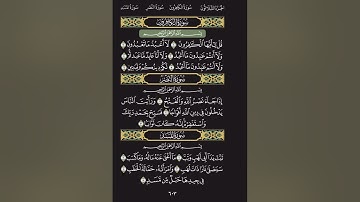 سُورَةُ الكَافِرُونَ
بِسْمِ اللَّهِ الرَّحْمَٰنِ الرَّحِيمِ
قُلْ يَا أَيُّهَا الْكَافِرُونَ ۝ لَا أَعْبُدُ مَا تَعْبُدُونَ ۝
وَلَا أَنْتُمْ عَابِدُونَ مَا أَعْبُدُ ۝ وَلَا أَنَا عَابِدٌ مَا عَبَدْتُمْ ۝
وَلَا أَنْتُمْ عَابِدُونَ مَا أَعْبُدُ ۝ لَكُمْ دِينُكُمْ وَلِيَ دِينِ ۝
سُورَةُ النَّصْرِ
بِسْمِ اللَّهِ الرَّحْمَٰنِ الرَّحِيمِ
إِذَا جَاءَ نَصْرُ اللَّهِ وَالْفَتْحُ ۝ وَرَأَيْتَ النَّاسَ
يَدْخُلُونَ فِي دِينِ اللَّهِ أَفْوَاجًا ۝ فَسَبِّحْ بِحَمْدِ رَبِّكَ
وَاسْتَغْفِرْهُ إِنَّهُ كَانَ تَوَّابًا ۝
سُورَةُ المَسَدِ
بِسْمِ اللَّهِ الرَّحْمَٰنِ الرَّحِيمِ
تَبَّتْ يَدَا أَبِي لَهَبٍ وَتَبَّ ۝ مَا أَغْنَىٰ عَنْهُ مَالُهُ وَمَا كَسَبَ ۝
سَيَصْلَىٰ نَارًا ذَاتَ لَهَبٍ ۝ وَامْرَأَتُهُ حَمَّالَةَ الْحَطَبِ ۝
فِي جِيدِهَا حَبْلٌ مِنْ مَسَدٍ ۝
٦٠٣